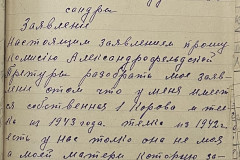 сандры
Заявление
Настоящим заявлением прошу
комисию Александрофельдской
претуры разобрать мое заяв-
ление отом что у меня имеет
ся собственная 1 Корова и те-
ка из 1943 года телка из 1942 г
есть у нас толко она не моя
а моей матери которую за-